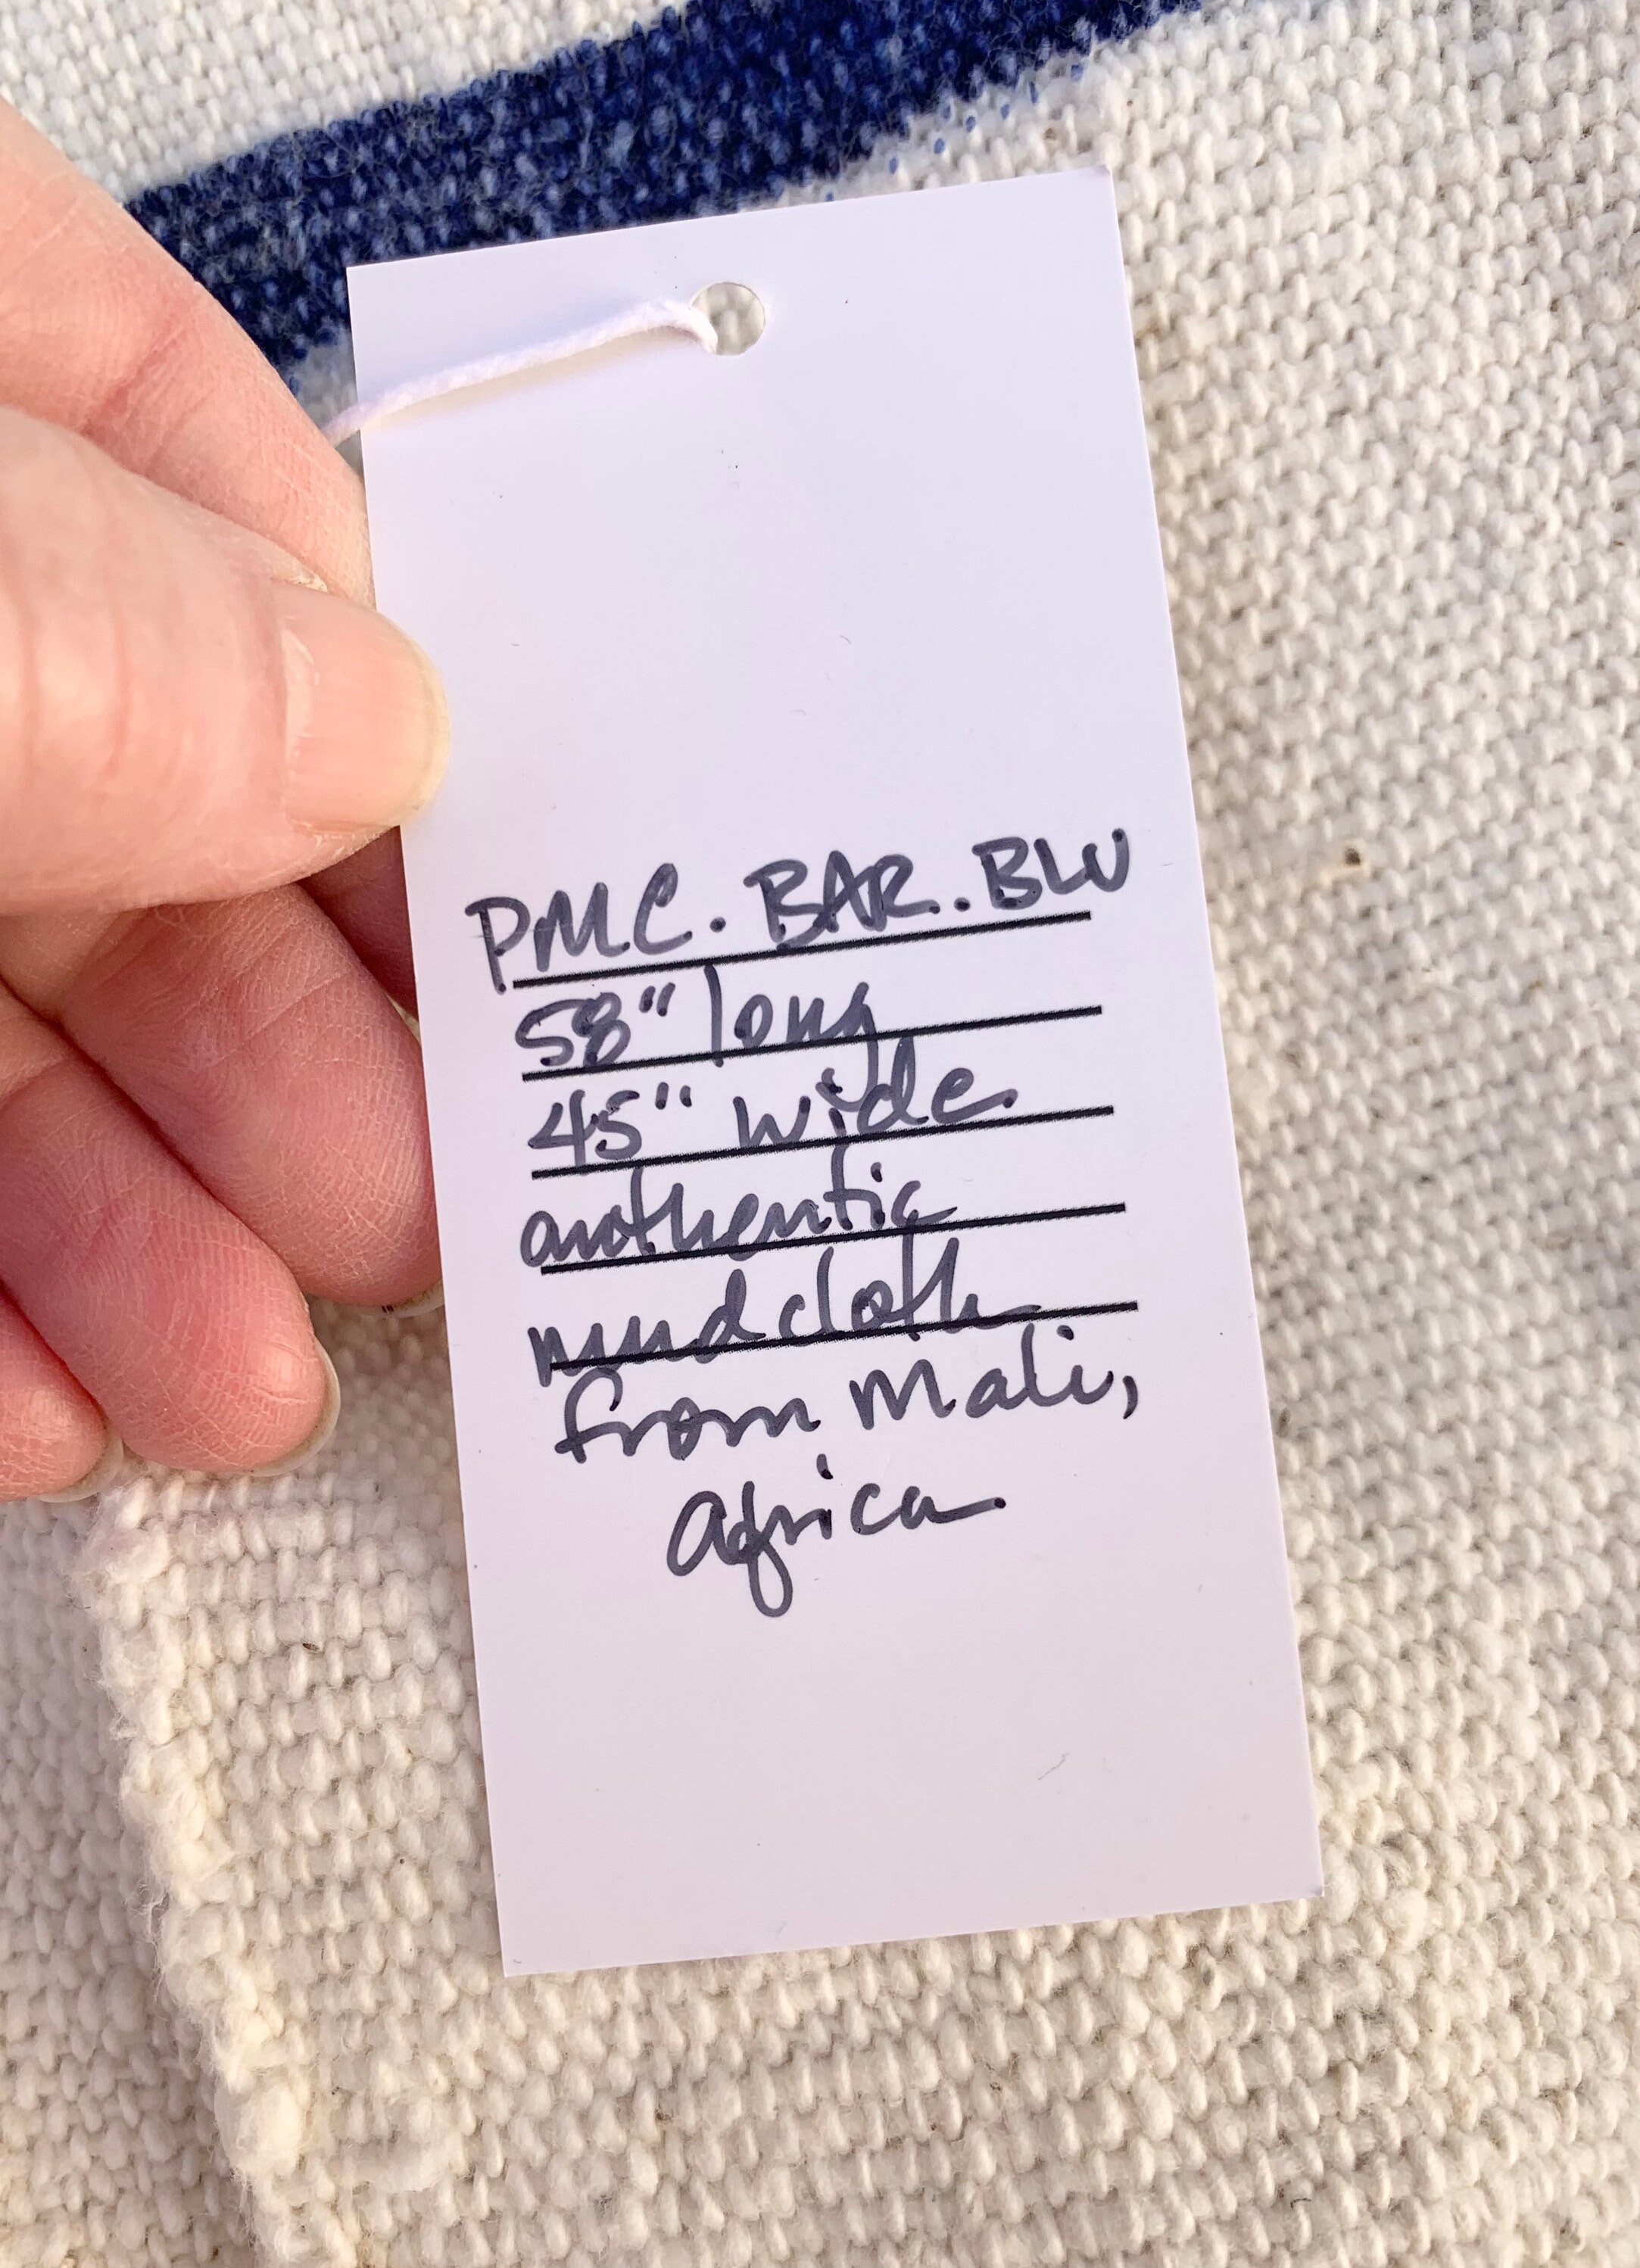 PMC. BAR. BLU
58" long
45" wide.
authentic
mudcloth
from Mali,
Africa